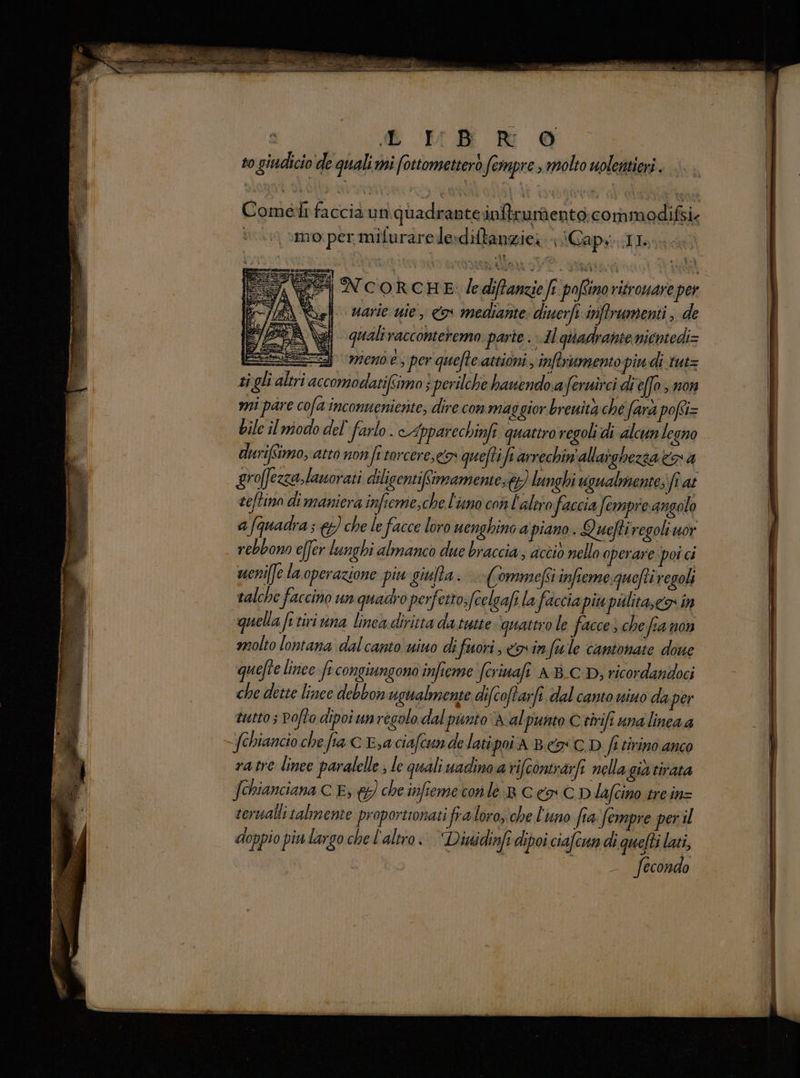 LIBRO
to giudicio de quali mi ſottometterò ſempre, molto uolentieri.
Come ſi faccia un quadrante inſtrumento commodiſsi-
mo per miſurare le diſtanzie. Cap. II.
ANCORCHE le diſtanzie ſi poſſino ritrouare per
uarie uie, & mediante diuerſi inſtrumenti, de
quali racconteremo parte. Il quadrante nientedi=
meno è, per queſte attioni, inſtrumento piu di tut=
ti gli altri accomodatiſſimo; perilche hauendo a ſeruirci di eſſo, non
mi pare coſa inconueniente, dire con maggior breuità che ſarà poſſi=
bile il modo del farlo. Apparechinſi quattro regoli di alcun legno
duriſſimo, atto non ſi torcere, & queſti ſi arrechin' allarghezza & a
groſſezza, lauorati diligentiſſimamente, & lunghi ugualmente, ſi at
teſtino di maniera inſieme, che l'uno con l'altro faccia ſempre angolo
a ſquadra; & che le facce loro uenghino a piano. Queſti regoli uor
rebbono eſſer lunghi almanco due braccia, acciò nello operare poi ci
ueniſſe la operazione piu giuſta. Commeſſi inſieme queſti regoli
talche faccino un quadro perfetto; ſcelgaſi la faccia piu pulita, & in
quella ſi tiri una linea diritta da tutte quattro le facce, che ſia non
molto lontana dal canto uiuo di fuori, & in ſu le cantonate doue
queſte linee ſi congiungono inſieme ſcriuaſi A B C D, ricordandoci
che dette linee debbon ugualmente diſcoſtarſi dal canto uiuo da per
tutto; Poſto dipoi un regolo dal punto A al punto C tiriſi una linea a
ſchiancio che ſia C E, a ciaſcun de lati poi A B & C D ſi tirino anco
ra tre linee paralelle, le quali uadino a riſcontrarſi nella già tirata
ſchianciana C E, & che inſieme con le B C & C D laſcino tre in=
terualli talmente proportionati fra loro, che l'uno ſia ſempre per il
doppio piu largo che l'altro. Diuidinſi dipoi ciaſcun di queſti lati,
ſecondo